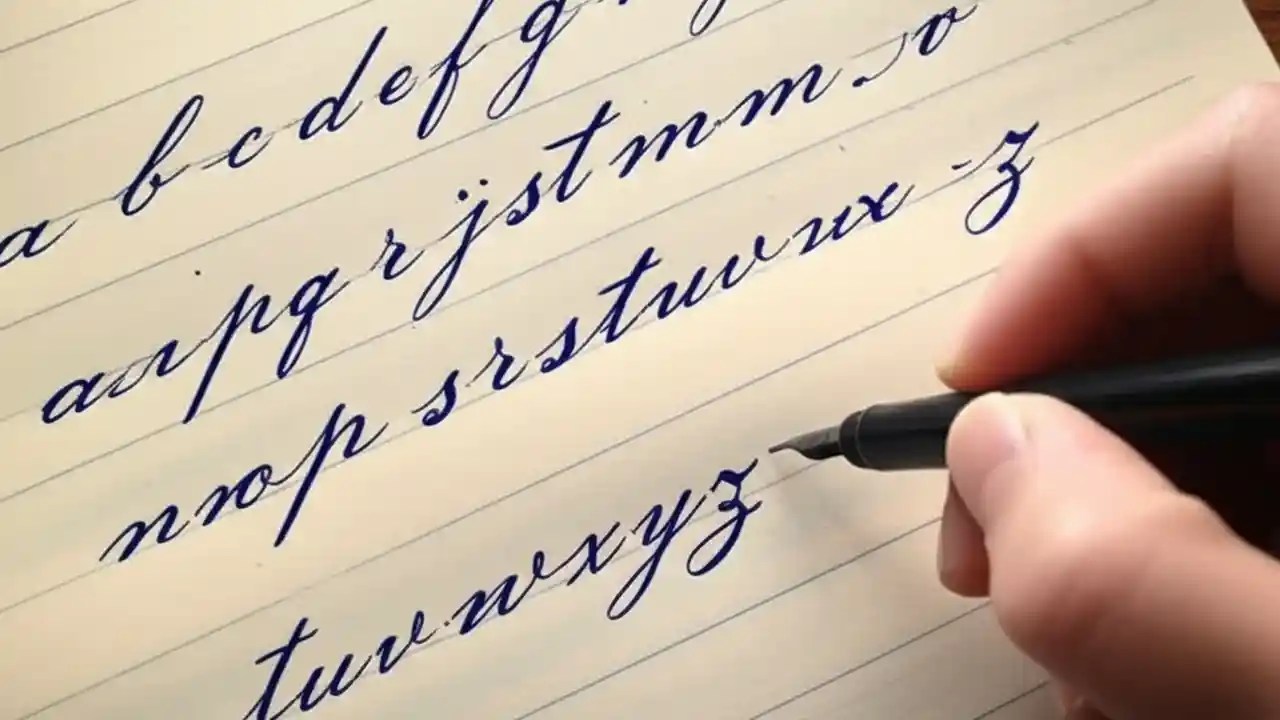 a b c d e f g
a r p q r j s t m m . o
n r o p s r s t u v u x - z
t u v w x y z